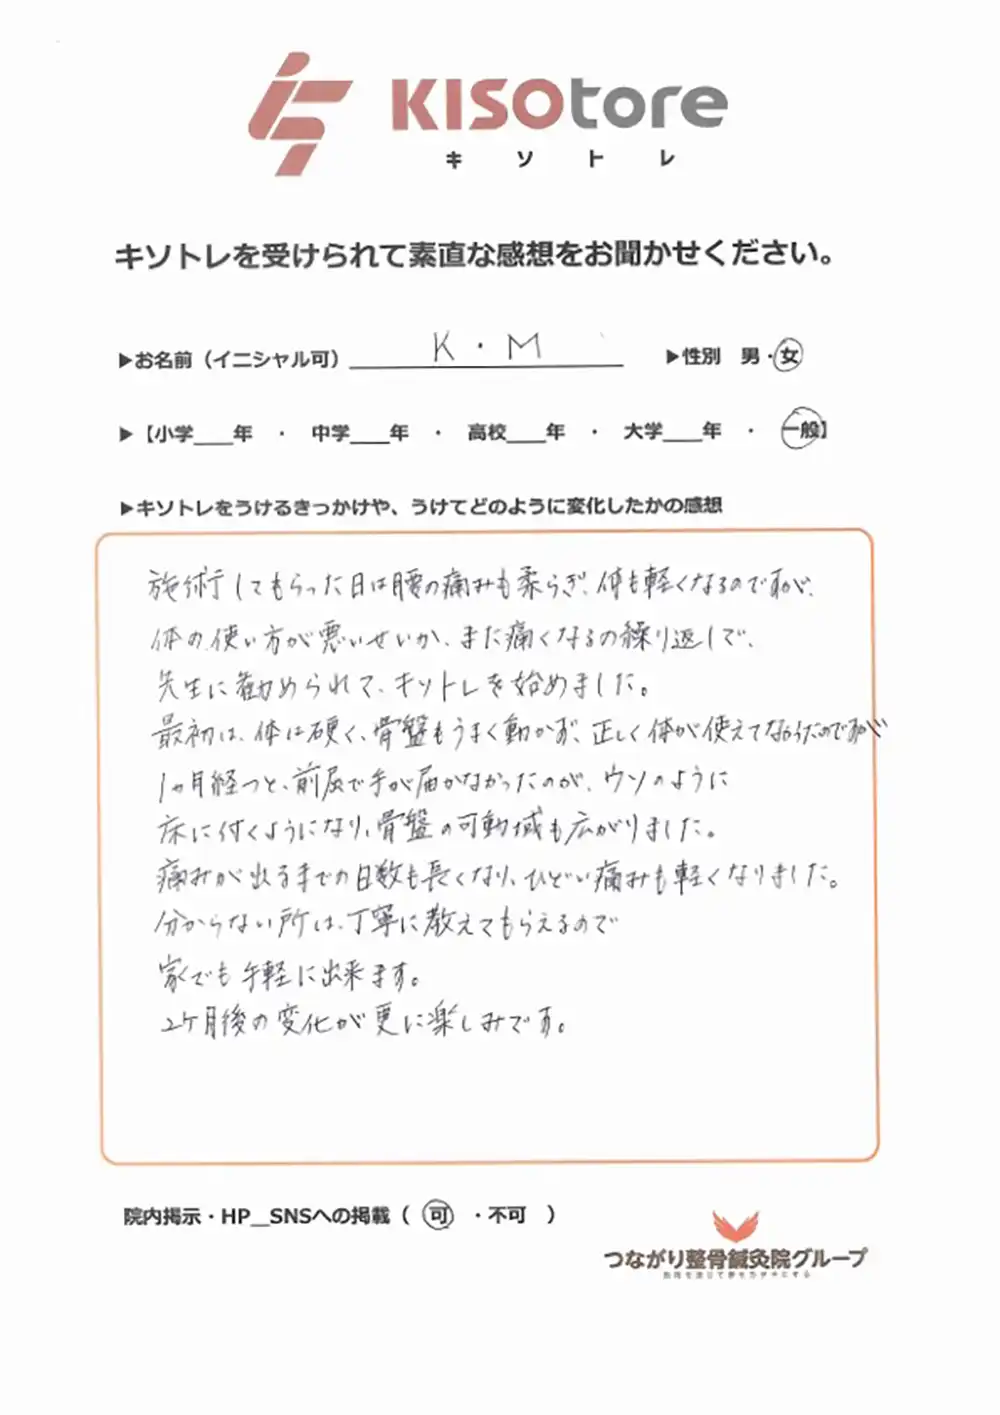 KISOtore
キソトレ
キソトレを受けられて素直な感想をお聞かせください。
▶お名前（イニシャル可） K・M ▶性別 男・女
▶【小学___年 ・ 中学___年 ・ 高校___年 ・ 大学___年 ・ 一般】
▶キソトレをうけるきっかけや、うけてどのように変化したかの感想
施術してもらった日は腰の痛みも柔らぎ、体も軽くなるのですが、
体の使い方が悪いせいか、また痛くなるの繰り返しで、
先生に勧められて、キソトレを始めました。
最初は、体は硬く、骨盤もうまく動かず、正しく体が使えてなかったのですが
1ヶ月経つと、前屈で手が届かなかったのが、ウソのように
床に付くようになり、骨盤の可動域も広がりました。
痛みが出るまでの日数も長くなり、ひどい痛みも軽くなりました。
分からない所は、丁寧に教えてもらえるので
家でも手軽に出来ます。
2ヶ月後の変化が更に楽しみです。
院内掲示・HP__SNSへの掲載（ 可 ・不可 ）
つながり整骨鍼灸院グループ